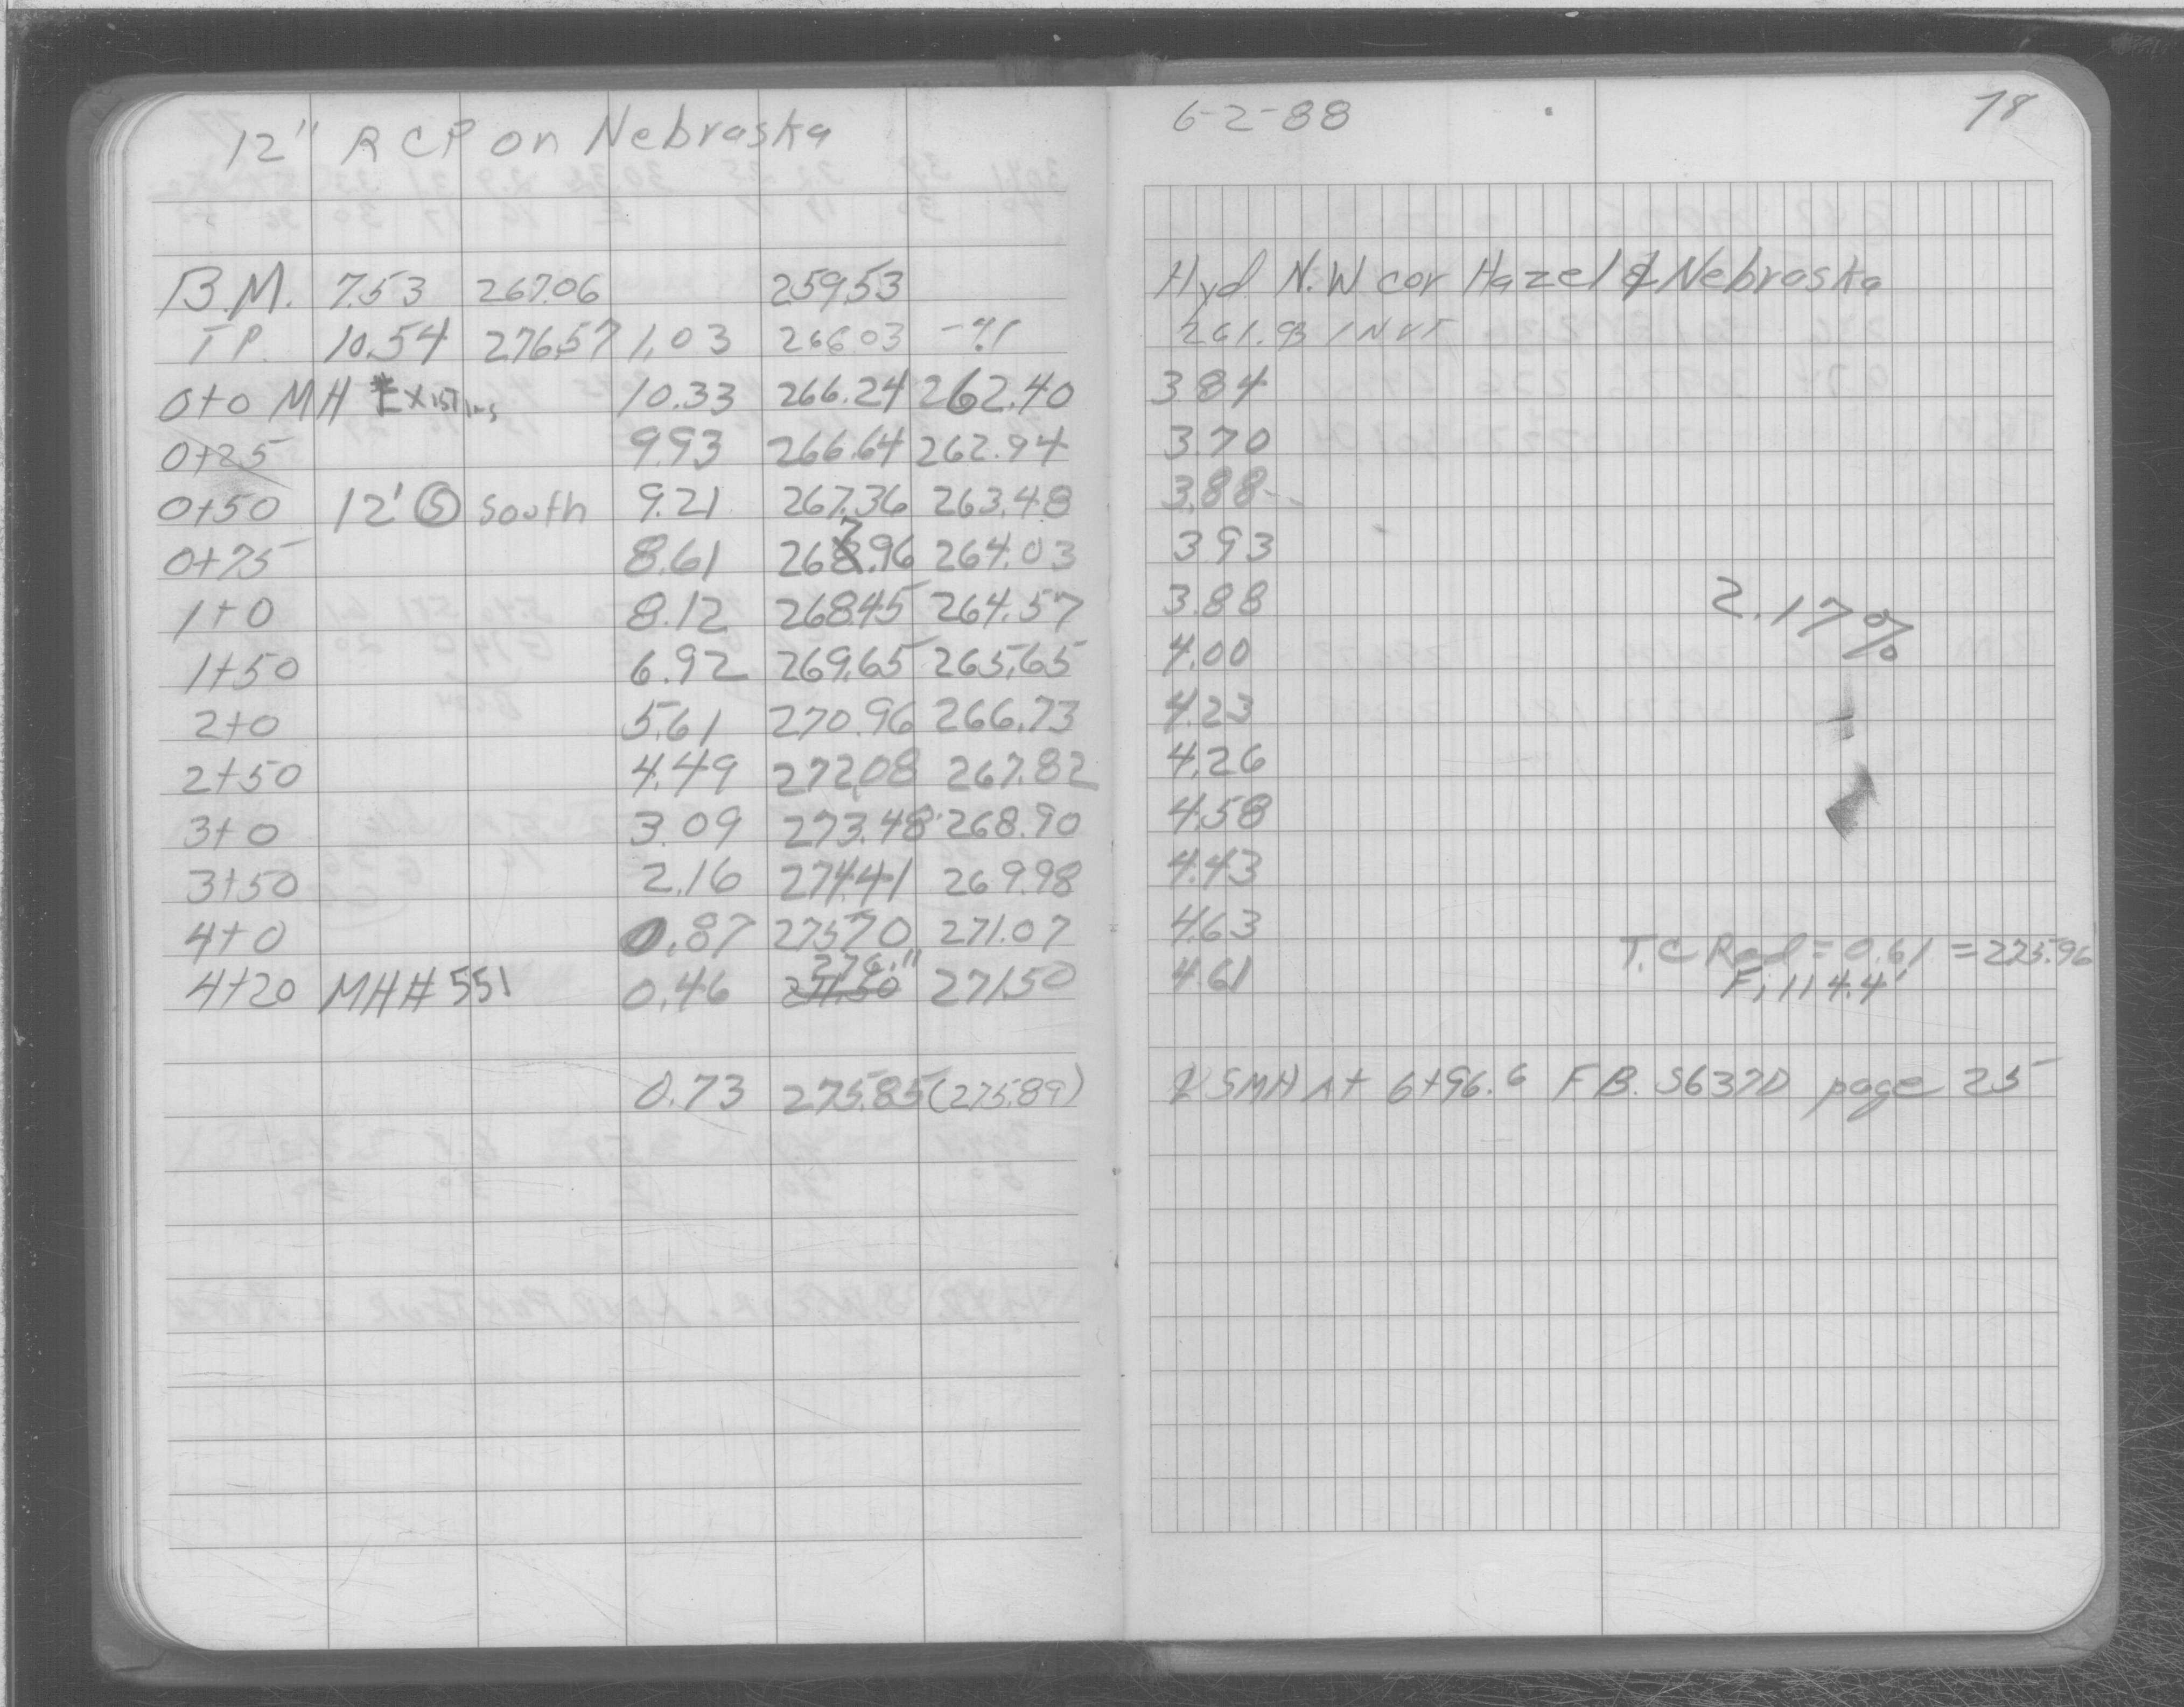 12" RCP on Nebraska
B.M. 7.53 267.06 259.53
T P. 10.54 276.57 1.03 266.03
0+0 MH Existing 10.33 266.24 262.40
0+25 9.93 266.64 262.94
0+50 12' Ⓢ South 9.21 267.36 263.48
0+75 8.61 267.96 264.03
1+0 8.12 268.45 264.57
1+50 6.92 269.65 265.65
2+0 5.61 270.96 266.73
2+50 4.49 272.08 267.82
3+0 3.09 273.48 268.90
3+50 2.16 274.41 269.98
4+0 0.87 275.70 271.07
276.11
4+20 MH# 551 0.46 271.50 271.50
0.73 275.85 (275.89)
6-2-88 78
Hyd N.W cor Hazel & Nebraska
261.93 INVT
3.84
3.70
3.88
3.93
3.88
2.17%
4.00
4.23
4.26
4.58
4.43
4.63
T.C Rad = 0.61 = 275.96
4.61 Fill 4.4'
SMH At 6+96.6 F B. S637D page 25